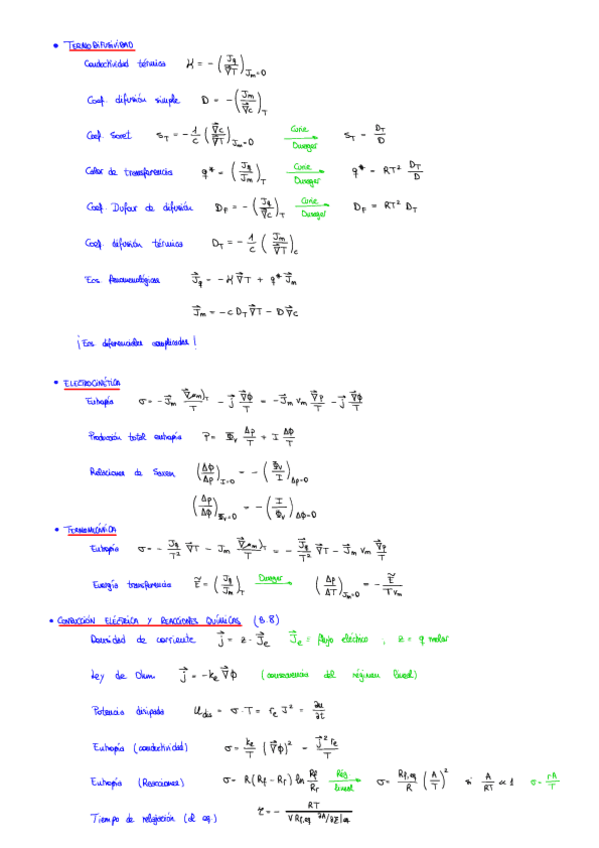 • TERMODIFUSIVIDAD
Conductividad térmica K = - (Jq/∇T)_{Jm=0}
Coef. difusión simple D = - (Jm/∇c)_T
Coef. Soret s_T = - 1/c (∇c/∇T)_{Jm=0} Curie Onsager → s_T = D_T/D
Calor de transferencia q* = (Jq/Jm)_T Curie Onsager → q* = RT² D_T/D
Coef. Dufour de difusión D_F = - (Jq/∇c)_T Curie Onsager → D_F = RT² D_T
Coef. difusión térmica D_T = - 1/c (Jm/∇T)_c
Ecs fenomenológicas J⃗q = - K ∇⃗T + q* J⃗m
J⃗m = - c D_T ∇⃗T - D ∇⃗c
¡Ecs diferenciales complicadas!
• ELECTROCINÉTICA
Entropía σ = - J⃗m (∇⃗μm)_T/T - j⃗ ∇⃗Φ/T = - J⃗m vm ∇⃗p/T - j⃗ ∇⃗Φ/T
Producción total entropía P = Φv Δp/T + I ΔΦ/T
Relaciones de Saxen (ΔΦ/Δp)_{I=0} = - (Φv/I)_{Δp=0}
(Δp/ΔΦ)_{Φv=0} = - (I/Φv)_{ΔΦ=0}
• TERMOMECÁNICA
Entropía σ = - J⃗q/T² ∇⃗T - J⃗m (∇⃗μm)_T/T = - J⃗q/T² ∇⃗T - J⃗m vm ∇⃗p/T
Energía transferencia Ẽ = (Jq/Jm)_T Onsager → (Δp/ΔT)_{Jm=0} = - Ẽ/(T vm)
• CONDUCCIÓN ELÉCTRICA Y REACCIONES QUÍMICAS (B.8)
Densidad de corriente j⃗ = z · J⃗e J⃗e = flujo eléctrico ; z = q molar
Ley de Ohm j⃗ = - ke ∇⃗Φ (consecuencia del régimen lineal)
Potencia disipada u̇dis = σ · T = re J² = ∂u/∂t
Entropía (conductividad) σ = ke/T (∇⃗Φ)² = j⃗² re/T
Entropía (Reacciones) σ = R (Rf - Rr) ln Rf/Rr Rég lineal → σ = Rf,eq/R (A/T)² si A/RT ≪ 1 σ = rA/T
Tiempo de relajación (al eq.) τ = - RT / (V Rf,eq ∂A/∂ξ|eq)